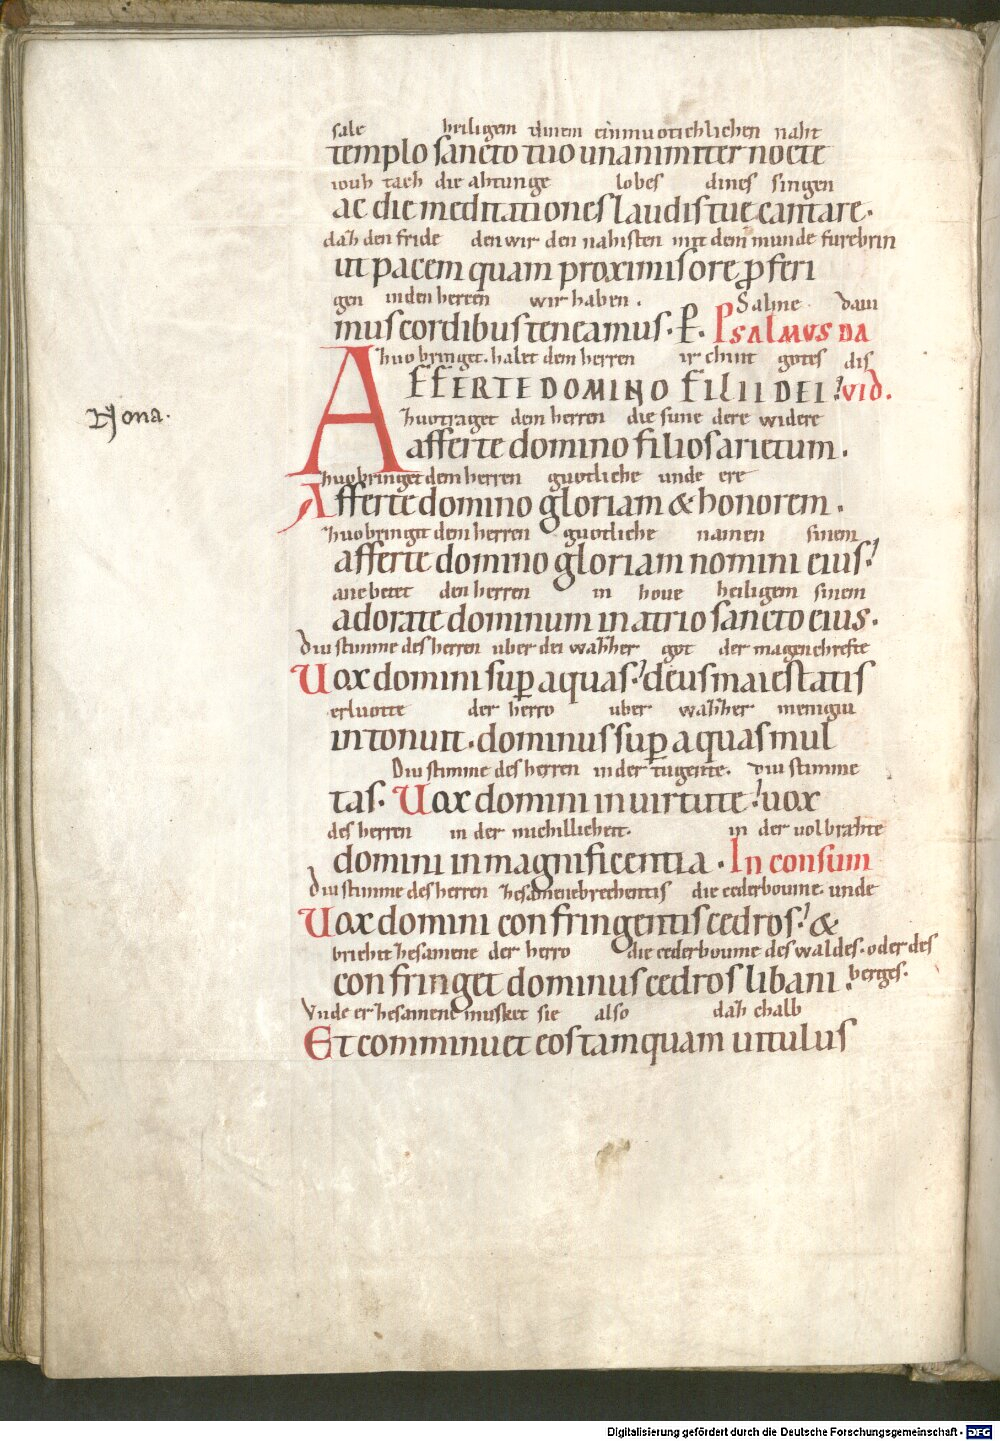 sale heiligem dinem einmuotichlichen naht
templo sancto tuo unanimiter nocte
iouh tach die ahtunge lobes dines singen
ac die meditationes laudis tue cantare.
daz den fride den wir den nahisten mit dem munde furebrin
ut pacem quam proximis ore ꝓferi
gen in den herten wir haben.
mus cordibus teneamus. P.
Salme daui
PSALMUS DA
zuo bringet. halet dem herren ir chint gotes dis
AFFERTE DOMINO FILII DEI: VID.
zuo traget dem herren die sune dere widere
Nona.
afferte domino filios arietum.
zuo bringet dem herren guotliche unde ere
Afferte domino gloriam & honorem.
zuo bringit dem herren guotliche namen sinem
afferte domino gloriam nomini eius:
anebetet den herren in houe heiligem sinem
adorate dominum in atrio sancto eius.
Diu stimme des herren uber dei wazzer got der magenchrefte
Uox domini sup aquas: deus maiestatis
erluotte der herro uber wazzer menigiu
intonuit. dominus sup aquas mul
Diu stimme des herren in der tugente. diu stimme
tas. Uox domini in uirtute: uox
des herren in der michillicheit. in der uolbrahte
domini in magnificentia. In consum
Diu stimme des herren zesamenebrechentis die cederboume. unde
Uox domini confringentis cedros: &
brichit zesamene der herro die cederboume des waldes. oder des
confringet dominus cedros libani: berges.
Unde er zesamene musket sie also daz chalb
Et comminuet eos tamquam uitulus
Digitalisierung gefördert durch die Deutsche Forschungsgemeinschaft - DFG